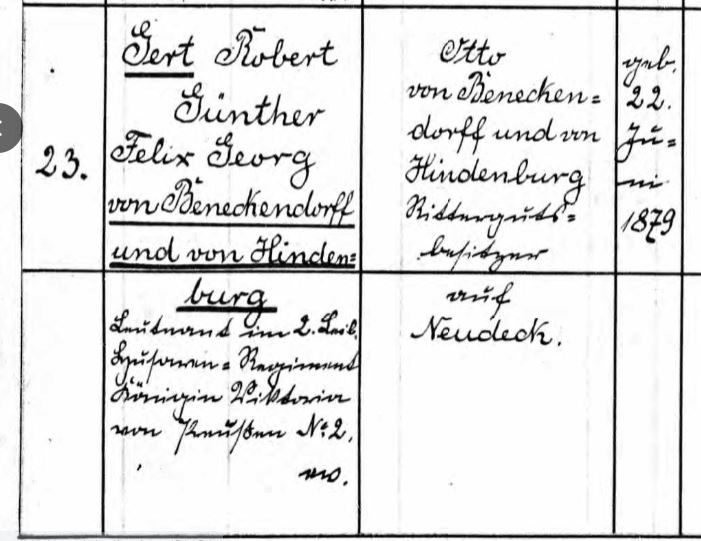 23.
Gert Robert
Günther
Felix Georg
von Beneckendorff
und von Hinden=
burg
Leutnant im 2. Leib
Husaren=Regiment
Königin Viktoria
von Preußen No 2,
Otto
von Benecken=
dorff und von
Hindenburg
Ritterguts=
besitzer
auf
Neudeck.
geb.
22.
Ju=
ni
1879